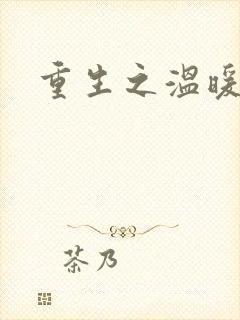 重生之温暖
茶乃